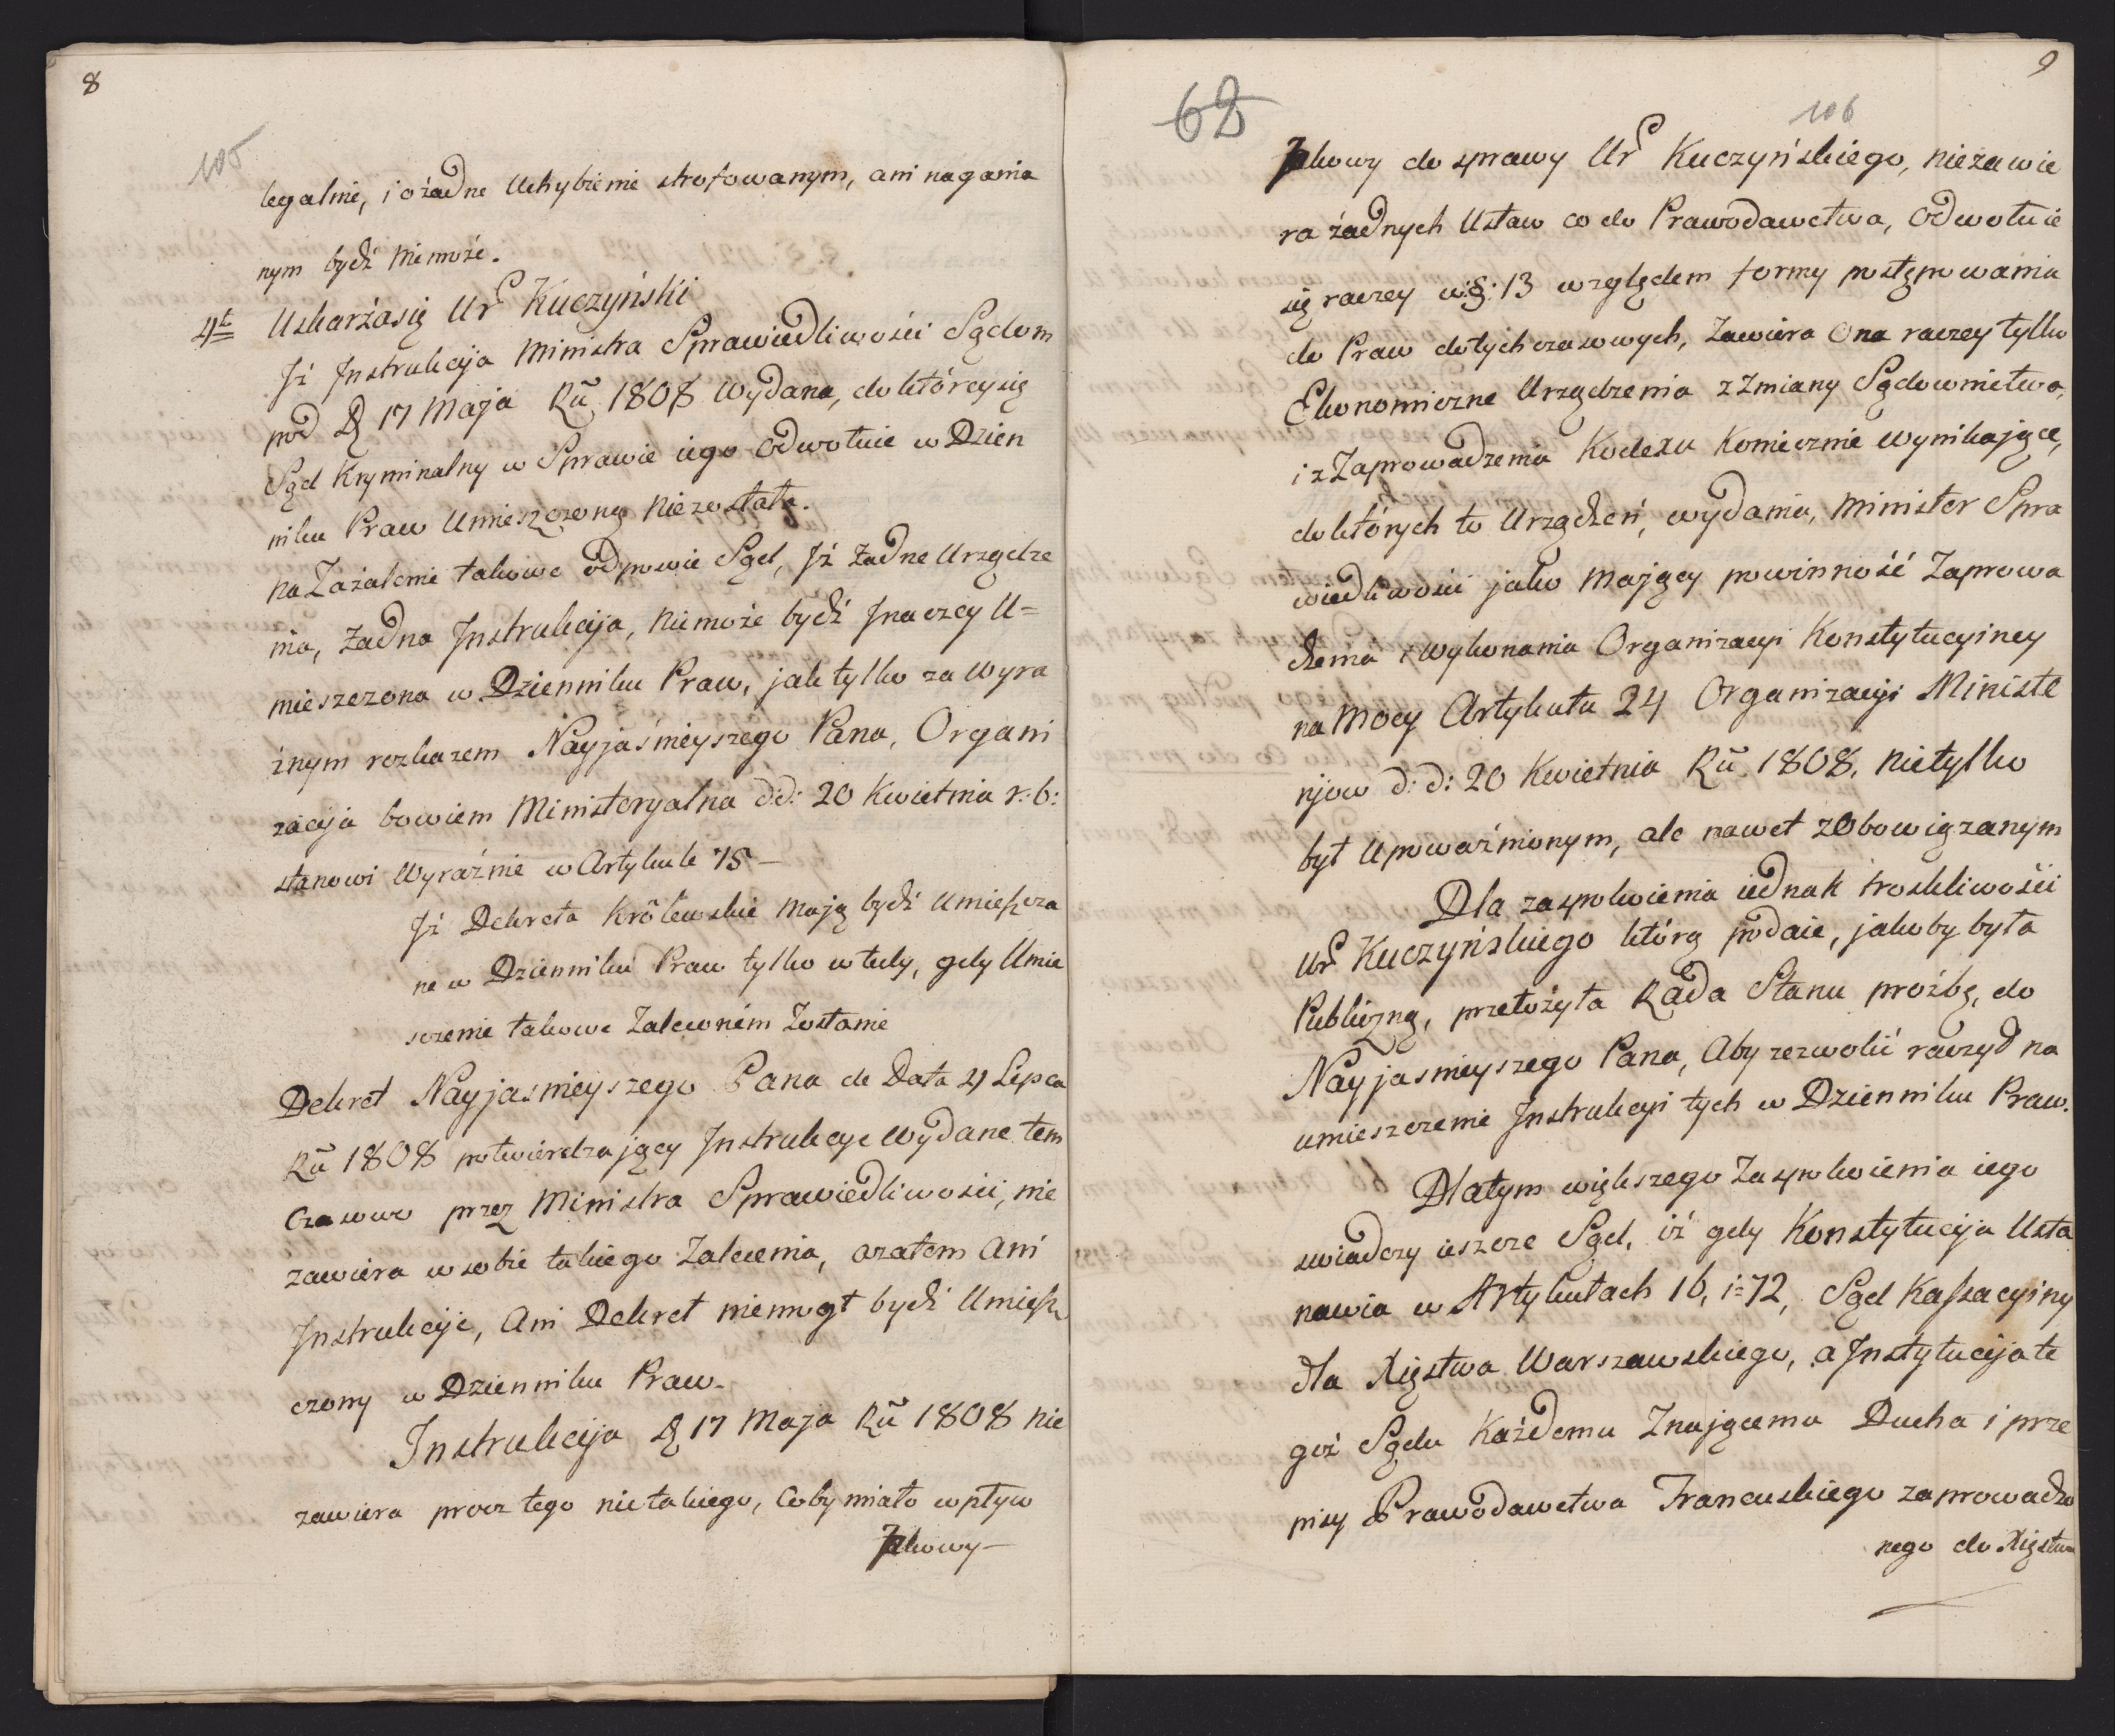 8
105
legalnie, i o żadne Uchybienie strofowanym, ani nagania
nym bydź nie może.
4t Uskarża się Ur Kuczyński
Jż Jnstrukcyja Ministra Sprawiedliwości Sądom
pod D 17 Maja Ru 1808 wydana, do którey się
Sąd Kryminalny w Sprawie iego odwołuie w Dzien
niku Praw Umieszczoną nie została.
na Zażalenie takowe odpowie Sąd, Jż żadne Urządze
nia, żadna Jnstrukcyja, nie może bydź Jnaczey U=
mieszczona w Dzienniku Praw, jak tylko za wyra
żnym rozkazem Nayjaśnieyszego Pana, Organi
zacyja bowiem Ministeryalna d:d: 20 Kwietnia r: b:
stanowi wyraźnie w Artykule 75 –
Jż Dekreta Królewskie mają bydź Umieszcza
ne w Dzienniku Praw tylko wtedy, gdy Umie
szczenie takowe Zaleconém Zostanie
Dekret Nayjasnieyszego Pana de Data 4 Lipca
Ru 1808 potwierdzający Jnstrukcye wydane tem
czasowo przez Ministra Sprawiedliwości, nie
zawiera w sobie takiego Zalecenia, a zatem Ani
Jnstrukcyie, Ani Dekret niemogł bydź Umiesz
czony w Dzienniku Praw.
Jnstrukcyja D 17 Maja Ru 1808 nie
zawiera procz tego nic takiego, coby miało wpływ
Jakowy –
9
62
106
Jakowy do sprawy Ur Kuczyńskiego, niezawie
ra żadnych Ustaw co do Prawodawctwa, odwołuie
się raczey w:§: 13 względem formy postępowania
do Praw dotychczasowych, zawiera Ona raczey tylko
Ekonomiczne Urządzenia z Zmiany Sądownictwa,
i z Zaprowadzenia Kodexu Koniecznie wynikające,
do których to Urządzeń, wydania, Minister Spra
wiedliwości jako mający powinność Zaprowa
dzenia i wykonania Organizacyi Konstytucyiney
na mocy Artykułu 24 Organizacyi Ministe
njow d: d: 20 Kwietnia Ru 1808, nietylko
był Upoważnionym, ale nawet zobowiązanym
Dla zaspokoienia iednak troskliwości
Ur Kuczyńskiego którą podaie, jakoby była
Publiczną, przełożyła Rada Stanu prożbę, do
Nayjasnieyszego Pana, Aby zezwolić raczył na
umieszczenie Jnstrukcyi tych w Dzienniku Praw.
Dla tym większego Zaspokoienia iego
swiadczy ieszcze Sąd, iż gdy Konstytucyja Usta
nawia w Artykułach 16, i 72, Sąd Kassacyiny
dla Xięstwa Warszawskiego, a Jnstytucyja te
goż Sądu Każdemu Znającemu Ducha i prze
pisy Prawodawctwa Francuskiego zaprowadzo
nego do Xięstwa